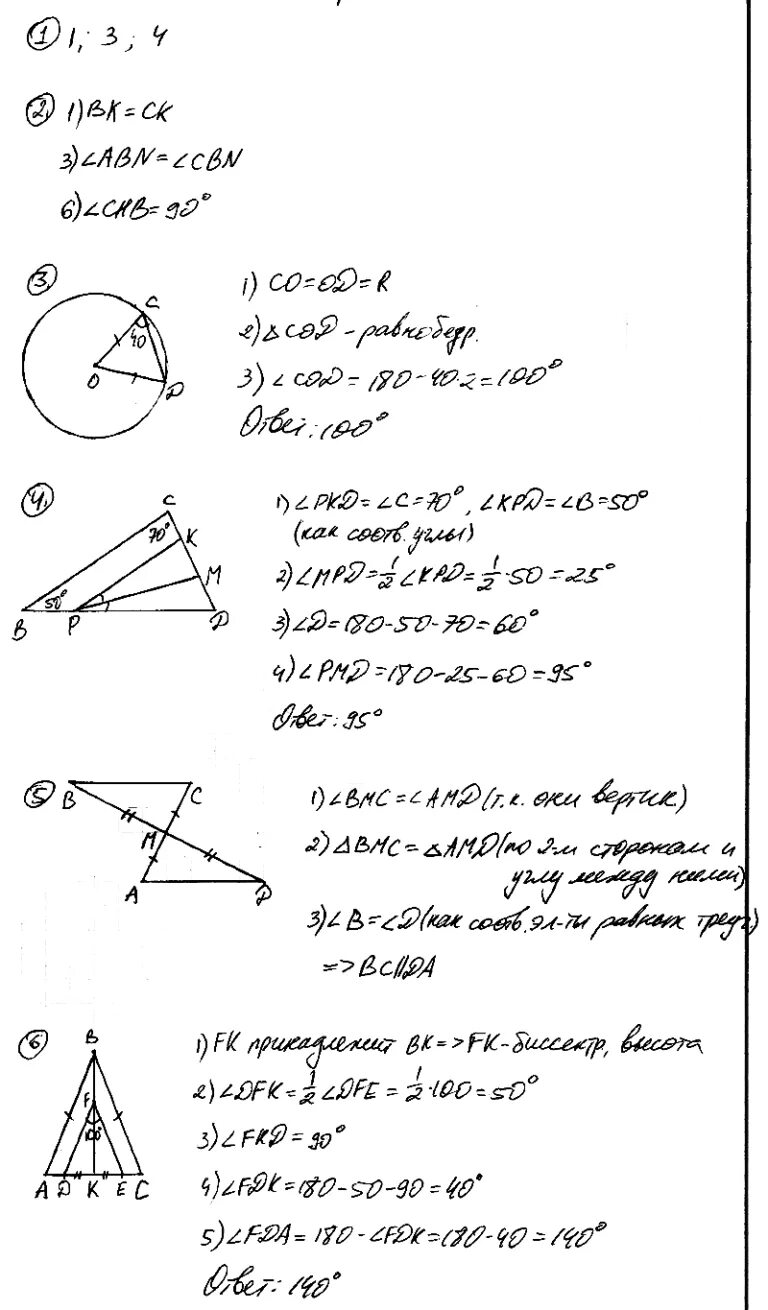 ① 1; 3; 4
② 1) BK = CK
3) ∠ABN = ∠CBN
6) ∠CHB = 90°
③
C
40
O
D
1) CO = OD = R
2) △COD - равнобедр.
3) ∠COD = 180 - 40·2 = 100°
Ответ: 100°
④
C
70°
K
M
50°
B P D
1) ∠PKD = ∠C = 70°, ∠KPD = ∠B = 50°
(как соотв. углы)
2) ∠MPD = 1/2 ∠KPD = 1/2 · 50 = 25°
3) ∠D = 180 - 50 - 70 = 60°
4) ∠PMD = 180 - 25 - 60 = 95°
Ответ: 95°
⑤
B C
M
A D
1) ∠BMC = ∠AMD (т.к. они вертик)
2) △BMC = △AMD (по 2-м сторонам и
углу между ними)
3) ∠B = ∠D (как соотв. эл-ты равных треуг)
=> BC||DA
⑥
B
F
100°
A D K E C
1) FK принадлежит BK => FK - биссектр, высота
2) ∠DFK = 1/2 ∠DFE = 1/2 · 100 = 50°
3) ∠FKD = 90°
4) ∠FDK = 180 - 50 - 90 = 40°
5) ∠FDA = 180 - ∠FDK = 180 - 40 = 140°
Ответ: 140°